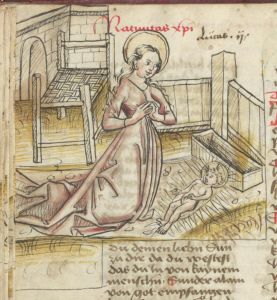 Natiuitas xpi
Lucas · ij ·
Du deinen liebn Sun
zu die da du westest
das du in von kainem
menschn · Sunder alain
von got empfangen